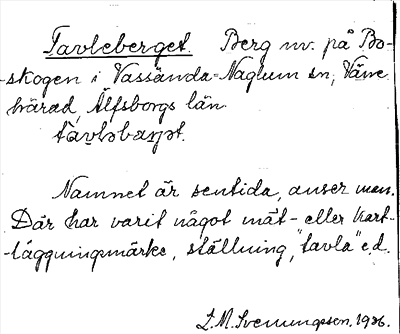 Tavleberget. Berg nv. på Bo-
skogen i Vassända-Naglum sn, Väne
härad, Älfsborgs län.
Namnet är sentida, anser man.
Där har varit något mät- eller kart-
-läggningsmärke, ställning, "tavla" e.d.
L.M. Svenungsson, 1926.